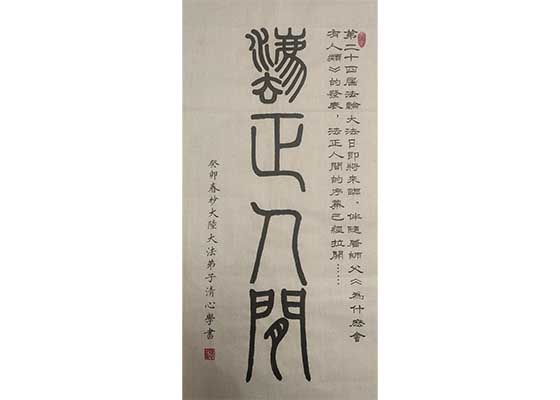 第二十四屆法輪大法日即將來臨，伴隨著師父《為什麽會
有人類》的發表，法正人間的序幕已經拉開……
灋正人間
癸卯春杪大陸大法弟子清心學書